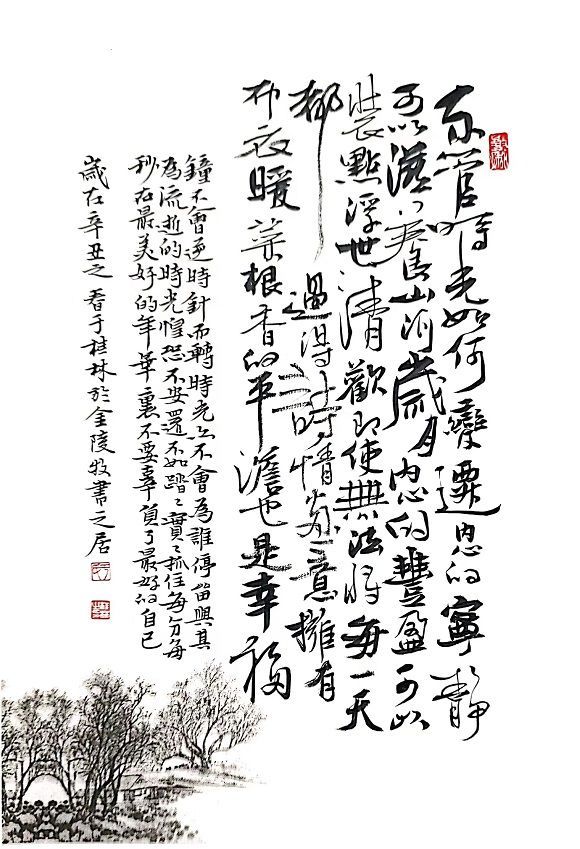 不管時光如何變遷内心的寧靜
可以滋養山河歲月内心的豐盈可以
裝點浮世清歡即使無法將每一天
都過得詩情畫意擁有
布衣暖菜根香的平澹也是幸福
鐘不會逆時針而轉時光亦不會為誰停留與其
為流逝的時光惶恐不安還不如踏々實々抓住每分每
秒在最美好的年華裏不要辜負了最好的自己
歲在辛丑之春于桂林於金陵牧書之居